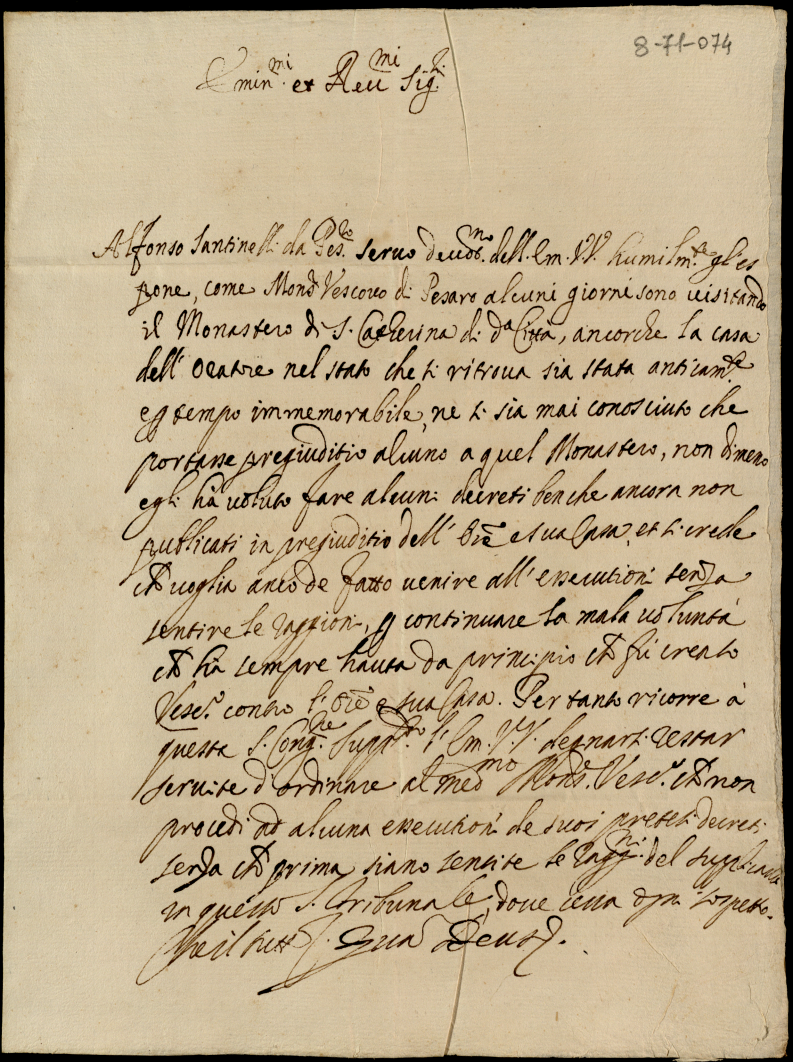 8-71-074
Emin.mi et Reu.mi Sig.ri
Alfonso Santinelli da Pes.ro seruo deuot.mo dell'Em. VV. humilm.te gl'es
pone, come Mons.r Vescouo di Pesaro alcuni giorni sono uisitando
il Monastero di S. Catherina di d.a Città, ancorche la casa
dell' Oratore nel stato che si ritroua sia stata anticam.te
e p tempo immemorabile, ne si sia mai conosciuto che
portasse pregiuditio alcuno a quel Monastero, non dimeno
egli hà uoluto fare alcuni decreti benche ancora non
publicati in pregiuditio dell' Ore e sua Casa, et si crede
ch uoglia anco de fatto uenire all' essecutioni senza
sentire le raggioni, p continuare la mala uoluntà
ch hà sempre hauta da principio ch fù creato
Vesc.o contro l' Ore e sua Casa. Per tanto ricorre à
questa S. Cong.ne supp.do l'Em. VV. degnarsi restar
seruite d'ordinare al med.mo Mons.r Vesc.o ch non
procedi ad alcuna essecutione de suoi pretesi decreti
senza ch prima siano sentite le ragg.ni del supplicante
in questo S. Tribunale, doue cessa ogni sospetto.
Che il tutto Qua Deus